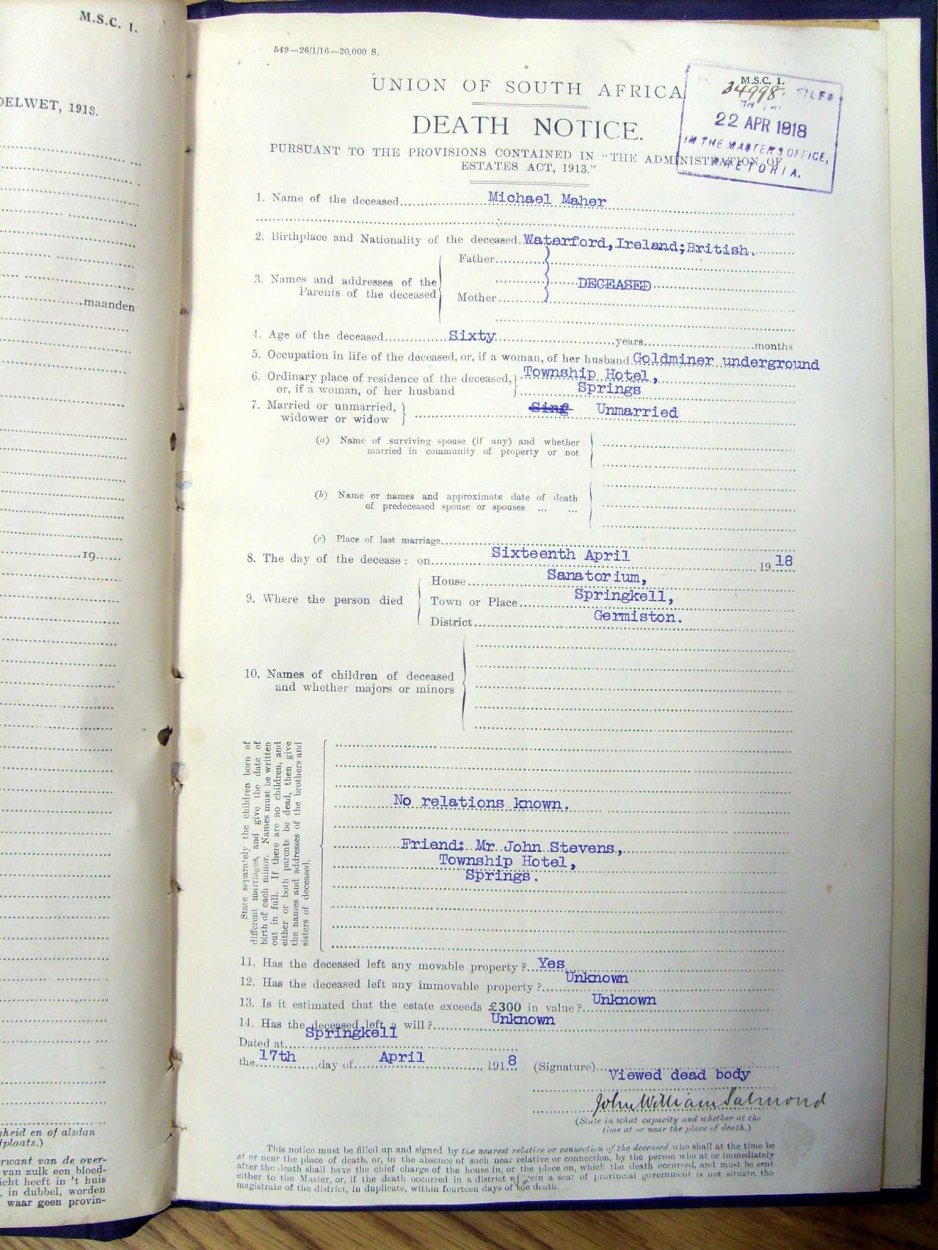 M.S.C. 1.
DELWET, 1913.
maanden
19
gheid en of alsdan
plaats.)
erwant van de over-
van zulk een bloed-
icht heeft in 't huis
, in dubbel, worden
waar geen provin-
549—26/1/16—20,000 S.
M.S.C. 1.
UNION OF SOUTH AFRICA
34998 FILED
22 APR 1918
IN THE MASTER'S OFFICE,
PRETORIA.
DEATH NOTICE.
PURSUANT TO THE PROVISIONS CONTAINED IN "THE ADMINISTRATION OF
ESTATES ACT, 1913."
1. Name of the deceased Michael Maher
2. Birthplace and Nationality of the deceased. Waterford, Ireland; British.
Father
3. Names and addresses of the
Parents of the deceased
DECEASED
Mother
4. Age of the deceased Sixty years months
5. Occupation in life of the deceased, or, if a woman, of her husband Goldminer underground
6. Ordinary place of residence of the deceased, Township Hotel,
or, if a woman, of her husband Springs
7. Married or unmarried, Sing Unmarried
widower or widow
(a) Name of surviving spouse (if any) and whether
married in community of property or not
(b) Name or names and approximate date of death
of predeceased spouse or spouses ... ...
(c) Place of last marriage
8. The day of the decease: on Sixteenth April 19 18
House Sanatorium,
9. Where the person died Town or Place Springkell,
District Germiston.
10. Names of children of deceased
and whether majors or minors
State separately the children born of
different marriages, and give the date of
birth of each minor. Names must be written
out in full. If there are no children, and
either or both parents be dead, then give
the names and addresses of the brothers and
sisters of deceased.
No relations known.
Friend: Mr John Stevens,
Township Hotel,
Springs.
11. Has the deceased left any movable property? Yes
12. Has the deceased left any immovable property? Unknown
13. Is it estimated that the estate exceeds £300 in value? Unknown
14. Has the deceased left a will? Unknown
Dated at Springkell
the 17th day of April 1918
(Signature) Viewed dead body
John William Salmond
(State in what capacity and whether at the
time at or near the place of death.)
This notice must be filled up and signed by the nearest relative or connection of the deceased who shall at the time be
at or near the place of death, or, in the absence of such near relative or connection, by the person who at or immediately
after the death shall have the chief charge of the house in, or the place on, which the death occurred, and must be sent
either to the Master, or, if the death occurred in a district wherein a seat of provincial government is not situate, the
magistrate of the district, in duplicate, within fourteen days of the death.